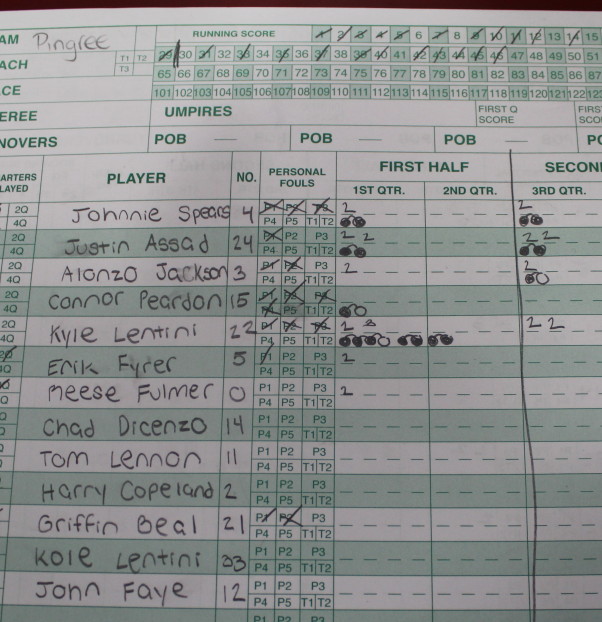 AM Pingree RUNNING SCORE 1 2 3 4 5 6 7 8 9 10 11 12 13 14 15
ACH T1 T2 29 30 31 32 33 34 35 36 37 38 39 40 41 42 43 44 45 46 47 48 49 50 51
T3 65 66 67 68 69 70 71 72 73 74 75 76 77 78 79 80 81 82 83 84 85 86 87
CE 101 102 103 104 105 106 107 108 109 110 111 112 113 114 115 116 117 118 119 120 121 122 123
EREE UMPIRES FIRST Q SCORE
NOVERS POB — POB — POB —
ARTERS LAYED PLAYER NO. PERSONAL FOULS FIRST HALF SECON
1ST QTR. 2ND QTR. 3RD QTR.
2Q Johnnie Spears 4 P1 P2 P3 2 2
4Q P4 P5 T1 T2
2Q Justin Assad 24 P1 P2 P3 2 2 2 2
4Q P4 P5 T1 T2
2Q Alonzo Jackson 3 P1 P2 P3 2 2
4Q P4 P5 T1 T2
2Q Connor Peardon 15 P1 P2 P3
4Q P4 P5 T1 T2
2Q Kyle Lentini 22 P1 P2 P3 2 3 2 2
4Q P4 P5 T1 T2
2Q Erik Fyrer 5 P1 P2 P3 2
4Q P4 P5 T1 T2
Reese Fulmer 0 P1 P2 P3 2
Q P4 P5 T1 T2
Chad Dicenzo 14 P1 P2 P3
P4 P5 T1 T2
Tom Lennon 11 P1 P2 P3
P4 P5 T1 T2
Harry Copeland 2 P1 P2 P3
P4 P5 T1 T2
Griffin Beal 21 P1 P2 P3
P4 P5 T1 T2
Kole Lentini 33 P1 P2 P3
P4 P5 T1 T2
John Faye 12 P1 P2 P3
P4 P5 T1 T2
P1 P2 P3